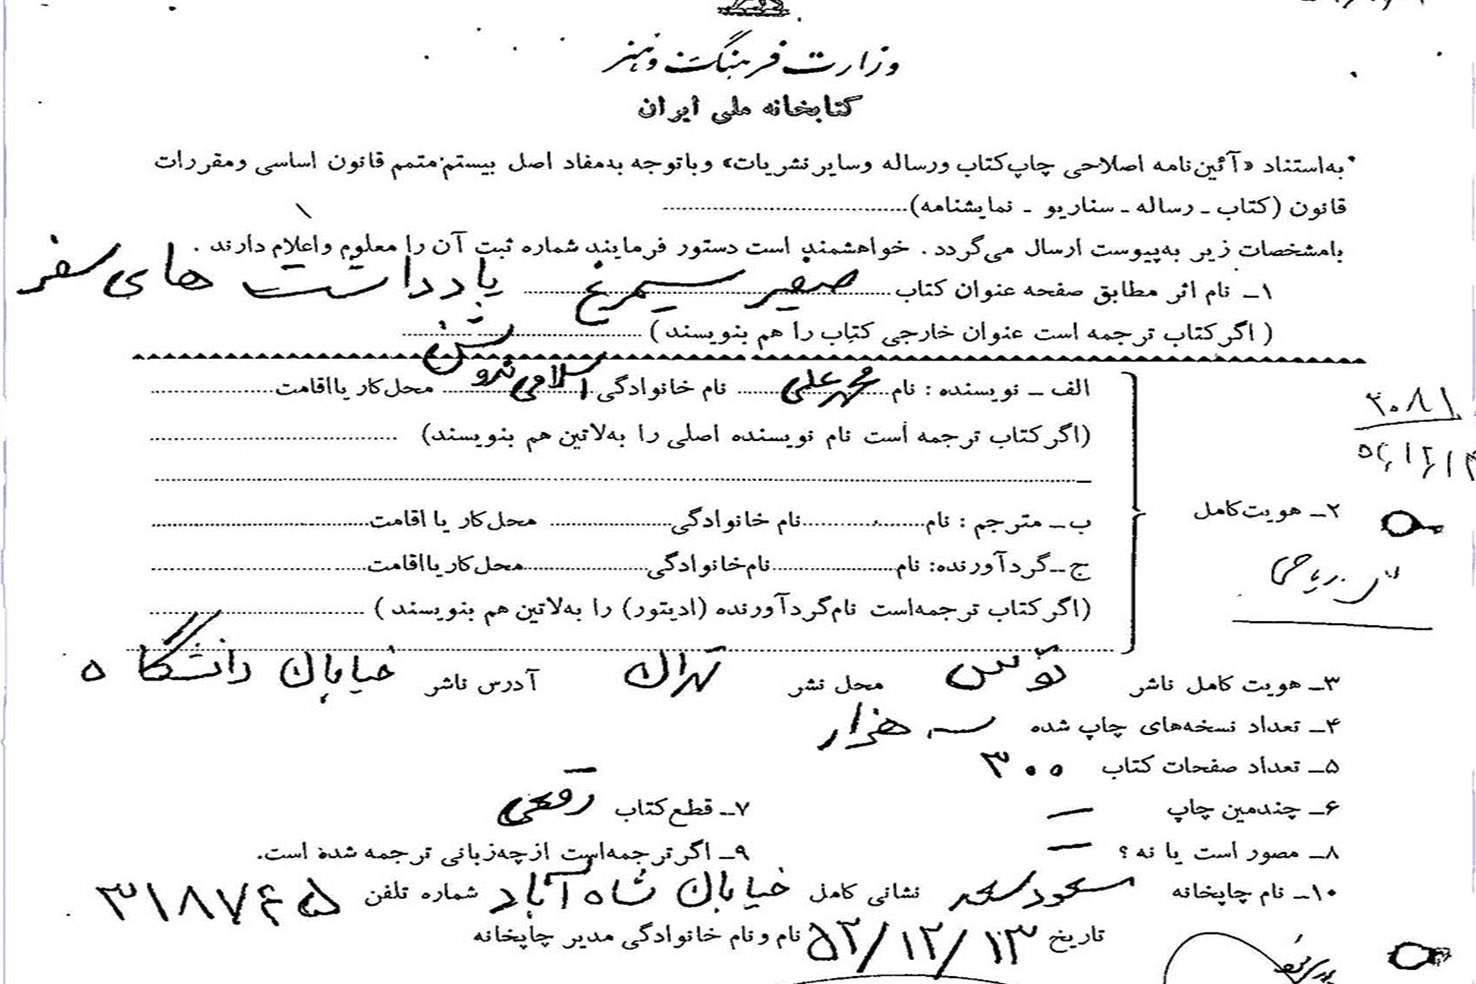 وزارت فرهنگ و هنر
کتابخانه ملی ایران
به‌استناد «آئین‌نامه اصلاحی چاپ‌کتاب ورساله وسایر نشریات» وباتوجه به‌مفاد اصل بیستم متمم قانون اساسی ومقررات
قانون (کتاب ـ رساله ـ سناریو ـ نمایشنامه)
بامشخصات زیر به‌پیوست ارسال می‌گردد . خواهشمند است دستور فرمایند شماره ثبت آن را معلوم واعلام دارند .
۱ـ نام اثر مطابق صفحه عنوان کتاب صفیر سیمرغ یادداشت های سفر
( اگر کتاب ترجمه است عنوان خارجی کتاب را هم بنویسند )
الف ـ نویسنده : نام محمد علی نام خانوادگی اسلامی ندوشن محل‌کار یا‌اقامت
۲۰۸۱
(اگر کتاب ترجمه است نام نویسنده اصلی را به‌لاتین هم بنویسند)
۲ـ هویت‌کامل
ب ـ مترجم : نام نام خانوادگی محل‌کار یا اقامت
ج ـ گردآورنده: نام نام‌خانوادگی محل‌کار‌یا‌اقامت
(اگر کتاب ترجمه‌است نام‌گردآورنده (ادیتور) را به‌لاتین هم بنویسند )
۳ـ هویت کامل ناشر توس محل نشر تهران آدرس ناشر خیابان دانشگاه
۴ـ تعداد نسخه‌های چاپ شده سه هزار
۵ـ تعداد صفحات کتاب ۳۰۰
۶ـ چندمین چاپ — ۷ـ قطع کتاب رقعی
۸ـ مصور است یا نه ؟ — ۹ـ اگر ترجمه‌است از چه‌زبانی ترجمه شده است.
۱۰ـ نام چاپخانه مسعود سعد نشانی کامل خیابان شاه آباد شماره تلفن ۳۱۸۷۴۵
تاریخ ۵۲/۱۲/۱۳ نام و نام خانوادگی مدیر چاپخانه